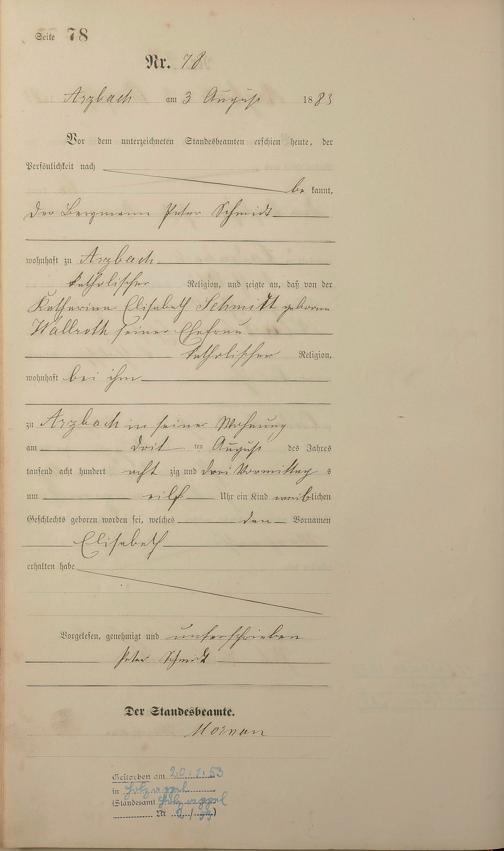 Seite 78
Nr. 78
Arzbach am 3 August 1883
Vor dem unterzeichneten Standesbeamten erschien heute, der
Persönlichkeit nach
be kannt,
der Bergmann Peter Schmidt
wohnhaft zu Arzbach
katholischer Religion, und zeigte an, daß von der
Katharina Elisabeth Schmidt geborene
Wallroth seiner Ehefrau
katholischer Religion,
wohnhaft bei ihm
zu Arzbach in seiner Wohnung
am ten August des Jahres
tausend acht hundert acht zig und drei Vormittag s
um eilf Uhr ein Kind weiblichen
Geschlechts geboren worden sei, welches den Vornamen
Elisabeth
erhalten habe
Vorgelesen, genehmigt und unterschrieben
Peter Schmidt
Der Standesbeamte.
Gestorben am 20.1.53
in Holzappel
(Standesamt Holzappel
Nr